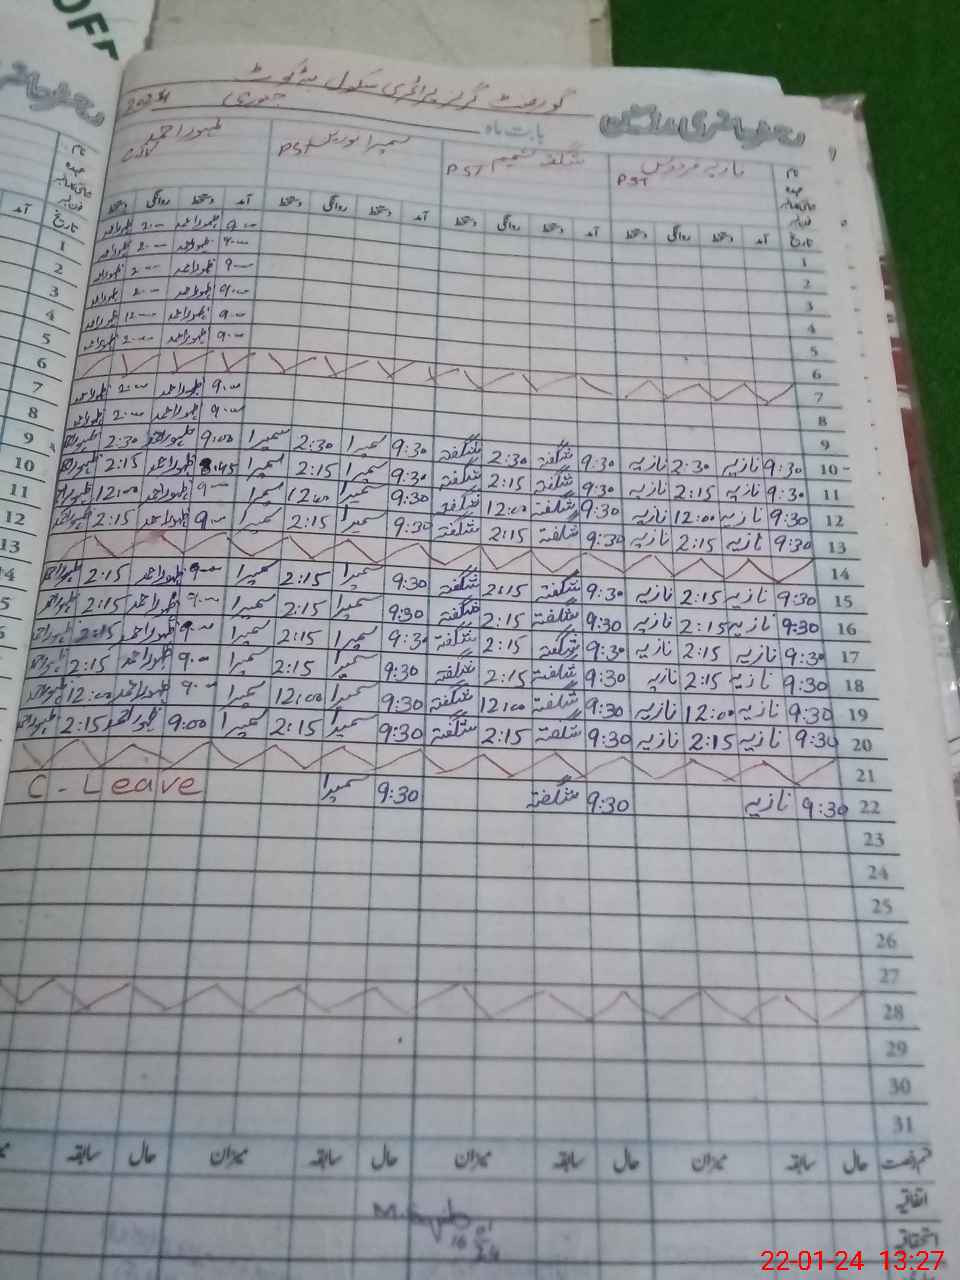 OFF
گورنمنٹ گرلز پرائمری سکول
رجسٹر حاضری مدرسین
بابت ماہ جنوری 2024
نازیہ فردوس PST شگفتہ شمیم PST سمیرا PST ظہور احمد
تاریخ آمد دستخط روانگی دستخط آمد دستخط روانگی دستخط آمد دستخط روانگی دستخط آمد دستخط روانگی دستخط
1 9:00 ظہور احمد 2:00 ظہور احمد
2 9:00 ظہور احمد 2:00 ظہور احمد
3 9:00 ظہور احمد 2:00 ظہور احمد
4 9:00 ظہور احمد 2:00 ظہور احمد
5 9:00 ظہور احمد 12:00 ظہور احمد
6 9:00 ظہور احمد 2:00 ظہور احمد
7
8 9:00 ظہور احمد 2:00 ظہور احمد
9 9:00 ظہور احمد 2:00 ظہور احمد
10 9:30 نازیہ 2:30 نازیہ 9:30 شگفتہ 2:30 شگفتہ 9:30 سمیرا 2:30 سمیرا 9:00 ظہور احمد 2:30 ظہور احمد
11 9:30 نازیہ 2:15 نازیہ 9:30 شگفتہ 2:15 شگفتہ 9:30 سمیرا 2:15 سمیرا 8:45 ظہور احمد 2:15 ظہور احمد
12 9:30 نازیہ 12:00 نازیہ 9:30 شگفتہ 12:00 شگفتہ 9:30 سمیرا 12:00 سمیرا 9:00 ظہور احمد 12:00 ظہور احمد
13 9:30 نازیہ 2:15 نازیہ 9:30 شگفتہ 2:15 شگفتہ 9:30 سمیرا 2:15 سمیرا 9:00 ظہور احمد 2:15 ظہور احمد
14
15 9:30 نازیہ 2:15 نازیہ 9:30 شگفتہ 2:15 شگفتہ 9:30 سمیرا 2:15 سمیرا 9:00 ظہور احمد 2:15 ظہور احمد
16 9:30 نازیہ 2:15 نازیہ 9:30 شگفتہ 2:15 شگفتہ 9:30 سمیرا 2:15 سمیرا 9:00 ظہور احمد 2:15 ظہور احمد
17 9:30 نازیہ 2:15 نازیہ 9:30 شگفتہ 2:15 شگفتہ 9:30 سمیرا 2:15 سمیرا 9:00 ظہور احمد 2:15 ظہور احمد
18 9:30 نازیہ 2:15 نازیہ 9:30 شگفتہ 2:15 شگفتہ 9:30 سمیرا 2:15 سمیرا 9:00 ظہور احمد 2:15 ظہور احمد
19 9:30 نازیہ 12:00 نازیہ 9:30 شگفتہ 12:00 شگفتہ 9:30 سمیرا 12:00 سمیرا 9:00 ظہور احمد 12:00 ظہور احمد
20 9:30 نازیہ 2:15 نازیہ 9:30 شگفتہ 2:15 شگفتہ 9:30 سمیرا 2:15 سمیرا 9:00 ظہور احمد 2:15 ظہور احمد
21
22 9:30 نازیہ 9:30 شگفتہ 9:30 سمیرا C - Leave
23
24
25
26
27
28
29
30
31
قسم رخصت حال سابقہ میزان حال سابقہ میزان حال سابقہ میزان حال سابقہ
اتفاقیہ
استحقاقیہ
22-01-24 13:27